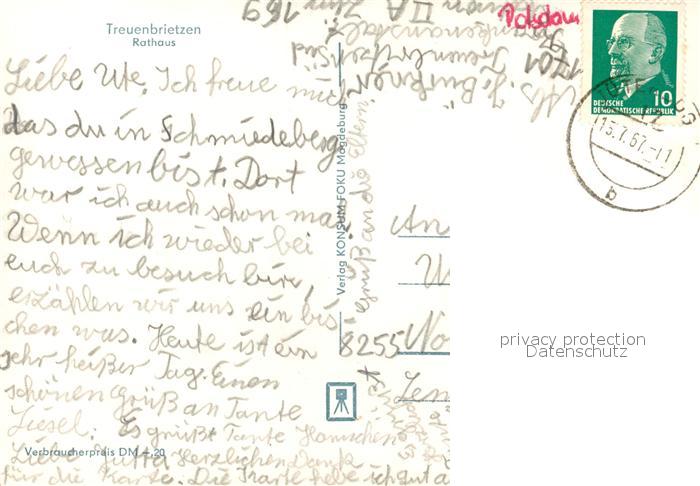 Treuenbrietzen
Rathaus
Liebe Ute. Ich freue mich
das du in Schmiedeberg
gewessen bist. Dort
war ich auch schon mal.
Wenn ich wieder bei
euch zu besuch bin,
erzählen wir uns ein bis
chen was. Heute ist ein
sehr heißer Tag. Einen
schönen Grüß an Tante
Liesel. Es grüßt Tante Hannchen
Liebe Jutta Herzlichen Dank
für die Karte. Die Karte habe ich gut a
Verbraucherpreis DM -,20
Verlag KONSUM FOKU Magdeburg
Grüß an die Eltern
Abs. J. 
1701 Treuenbrietzen
II A
169
Potsdam
DEUTSCHE
DEMOKRATISCHE REPUBLIK
10
15.7.67.-11
b
An
U
8255 No
privacy protection
Datenschutz